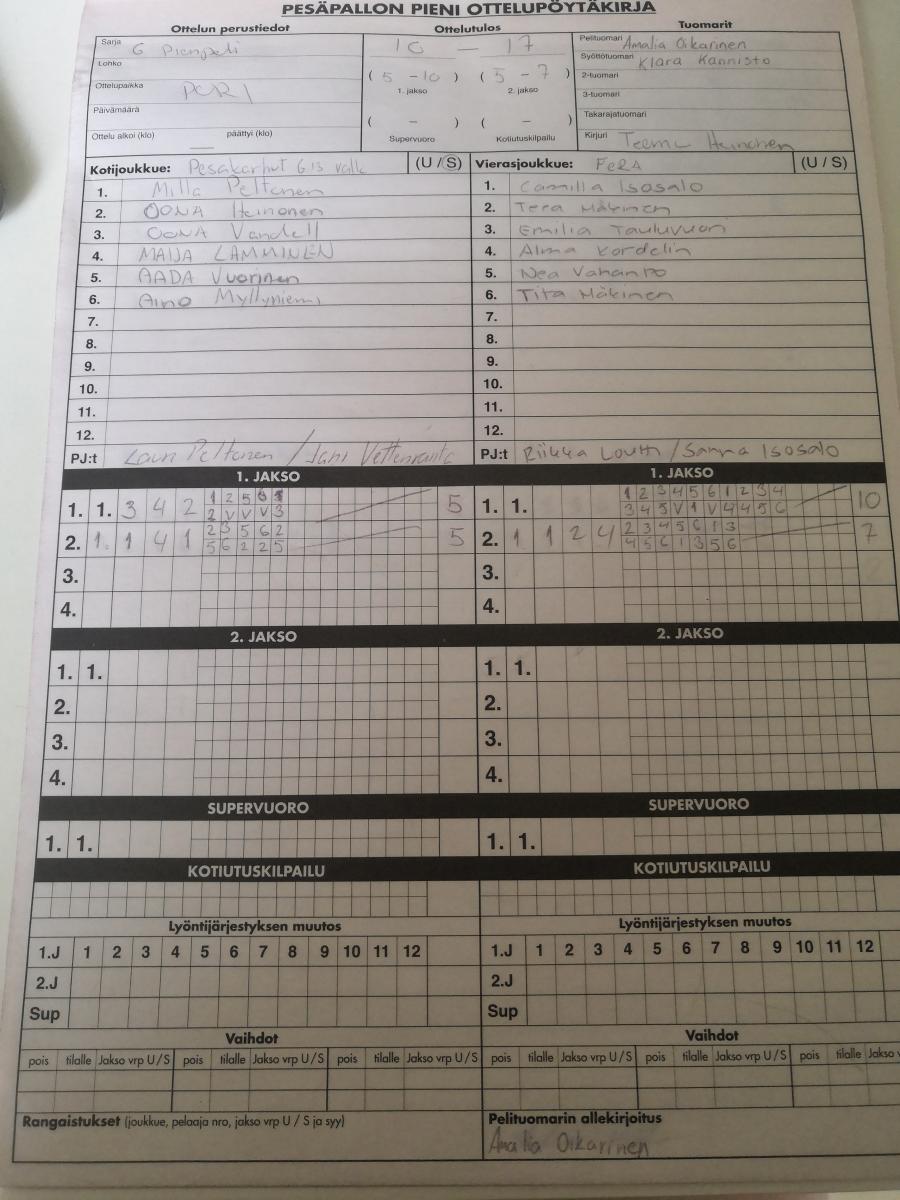 PESÄPALLON PIENI OTTELUPÖYTÄKIRJA
Ottelun perustiedot Ottelutulos Tuomarit
Sarja G Pienpeli
Lohko
Ottelupaikka PORI
Päivämäärä
Ottelu alkoi (klo) päättyi (klo)
10 — 17
( 5 - 10 ) ( 5 - 7 )
1. jakso 2. jakso
( - ) ( - )
Supervuoro Kotiutuskilpailu
Pelituomari Amalia Oikarinen
Syöttötuomari Klara Kannisto
2-tuomari
3-tuomari
Takarajatuomari
Kirjuri Teemu Heinonen
Kotijoukkue: Pesäkarhut G13 valk (U / S)
1. Milla Peltonen
2. OONA Heinonen
3. OONA Vandell
4. MAIJA LAMMINEN
5. AADA Vuorinen
6. Aino Myllyniemi
7.
8.
9.
10.
11.
12.
PJ:t Lauri Peltonen / Jani Vettenranta
Vierasjoukkue: FeRA (U / S)
1. Camilla Isosalo
2. Teea Mäkinen
3. Emilia Tauluvuori
4. Alma Kordelin
5. Nea Vahanto
6. Tita Mäkinen
7.
8.
9.
10.
11.
12.
PJ:t Riikka Louhi / Sanna Isosalo
1. JAKSO 1. JAKSO
1. 1. 3 4 2 1 2 5 6 1 5
2 V V V 3
2. 1. 1 4 1 2 3 5 6 2 5
5 6 2 2 5
3.
4.
1. 1. 1 2 3 4 5 6 1 2 3 4 10
3 4 5 V 1 V 4 4 5 6
2. 1 1 2 4 2 3 4 5 6 1 3 7
4 5 6 1 3 5 6
3.
4.
2. JAKSO 2. JAKSO
1. 1. 1. 1.
2. 2.
3. 3.
4. 4.
SUPERVUORO SUPERVUORO
1. 1. 1. 1.
KOTIUTUSKILPAILU KOTIUTUSKILPAILU
Lyöntijärjestyksen muutos Lyöntijärjestyksen muutos
1.J 1 2 3 4 5 6 7 8 9 10 11 12 1.J 1 2 3 4 5 6 7 8 9 10 11 12
2.J 2.J
Sup Sup
Vaihdot Vaihdot
pois tilalle Jakso vrp U/S pois tilalle Jakso vrp U/S pois tilalle Jakso vrp U/S pois tilalle Jakso vrp U/S pois tilalle Jakso vrp U/S pois tilalle Jakso v
Rangaistukset (joukkue, pelaaja nro, jakso vrp U / S ja syy)
Pelituomarin allekirjoitus
Amalia Oikarinen